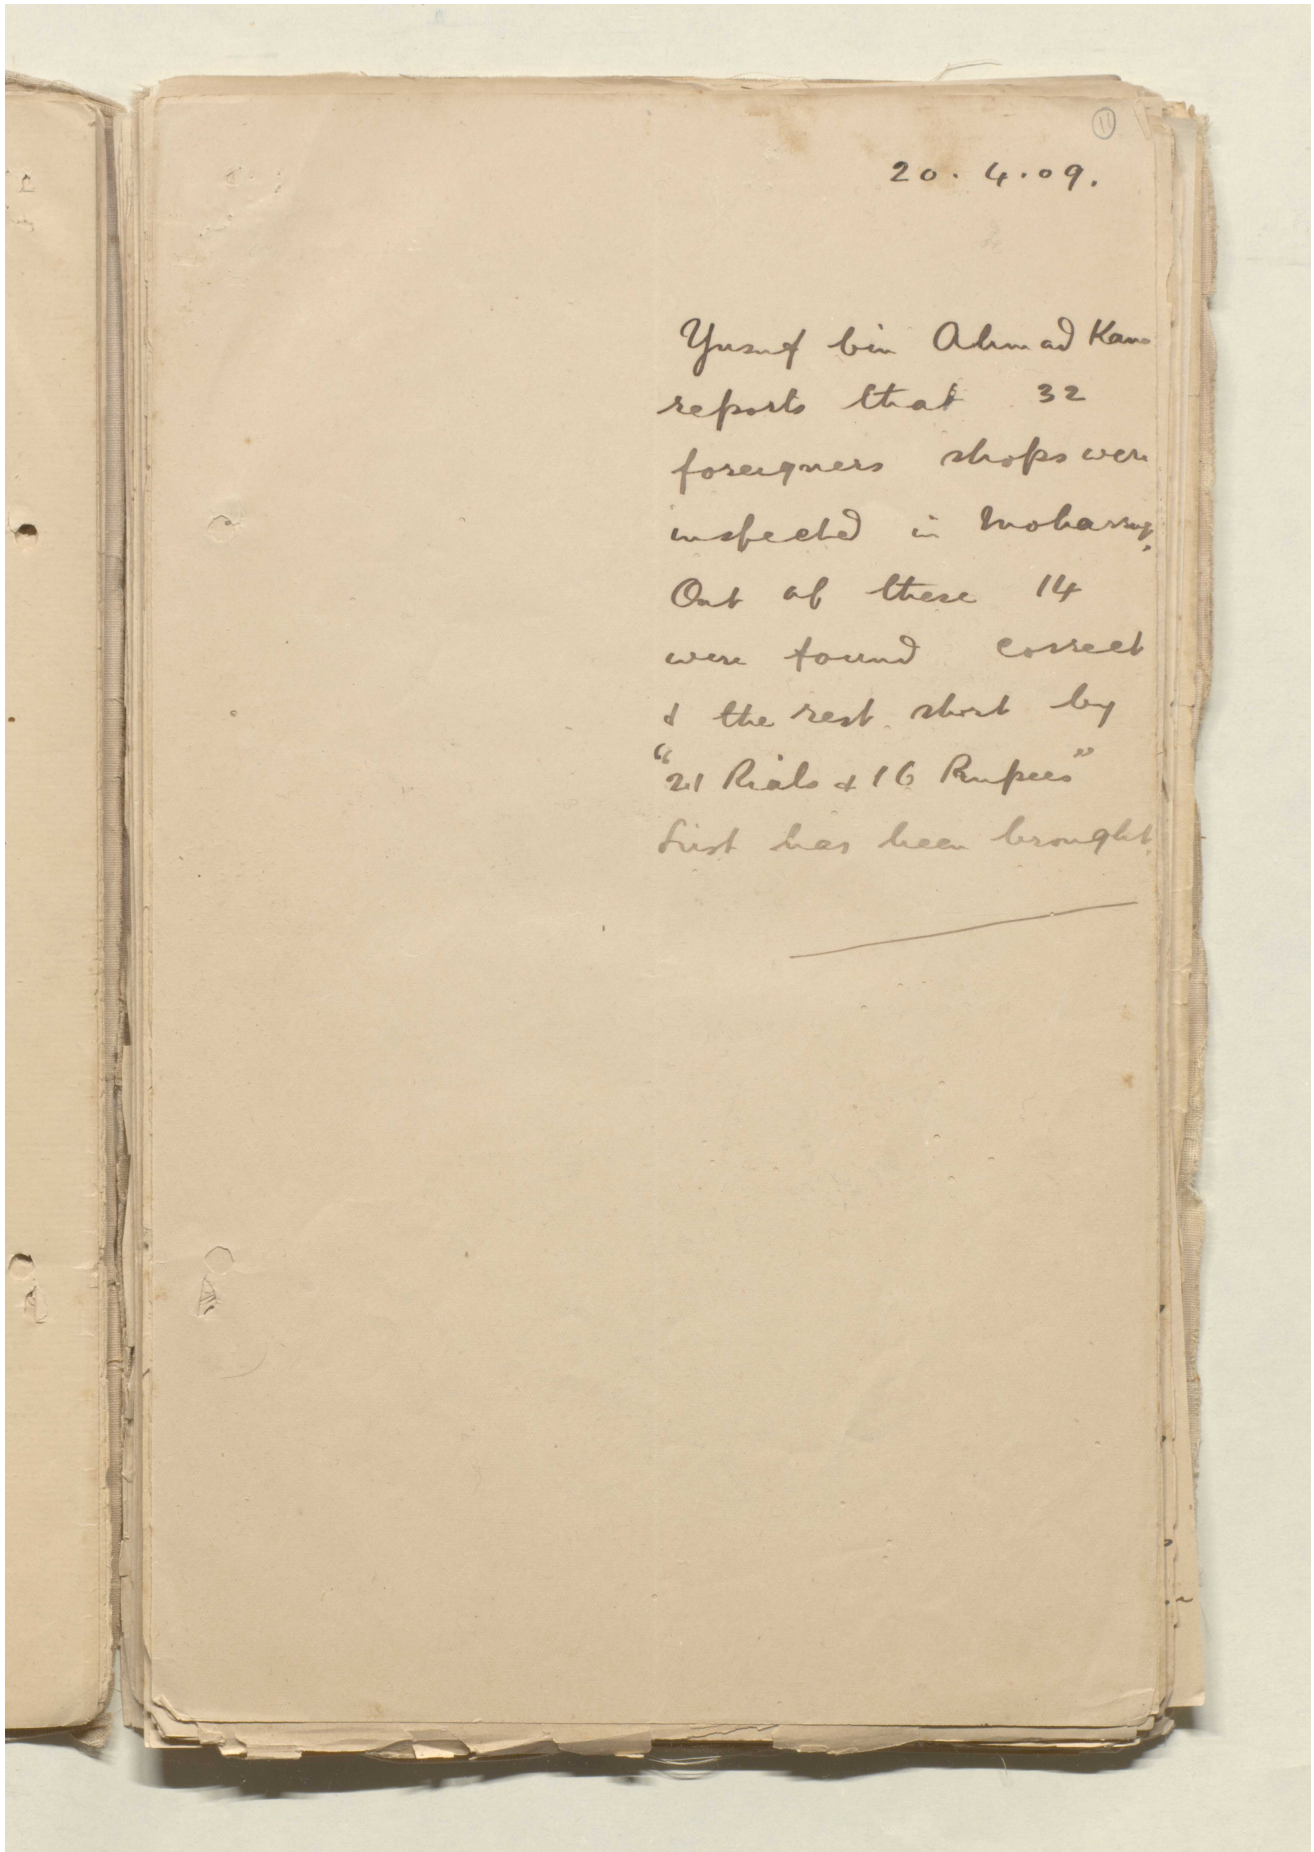 11
20.4.09.
Yusuf bin Ahmad Kano
reports that 32
foreigners shops were
inspected in Moharrag.
Out of these 14
were found correct
& the rest short by
"21 Rials & 16 Rupees"
List has been brought.